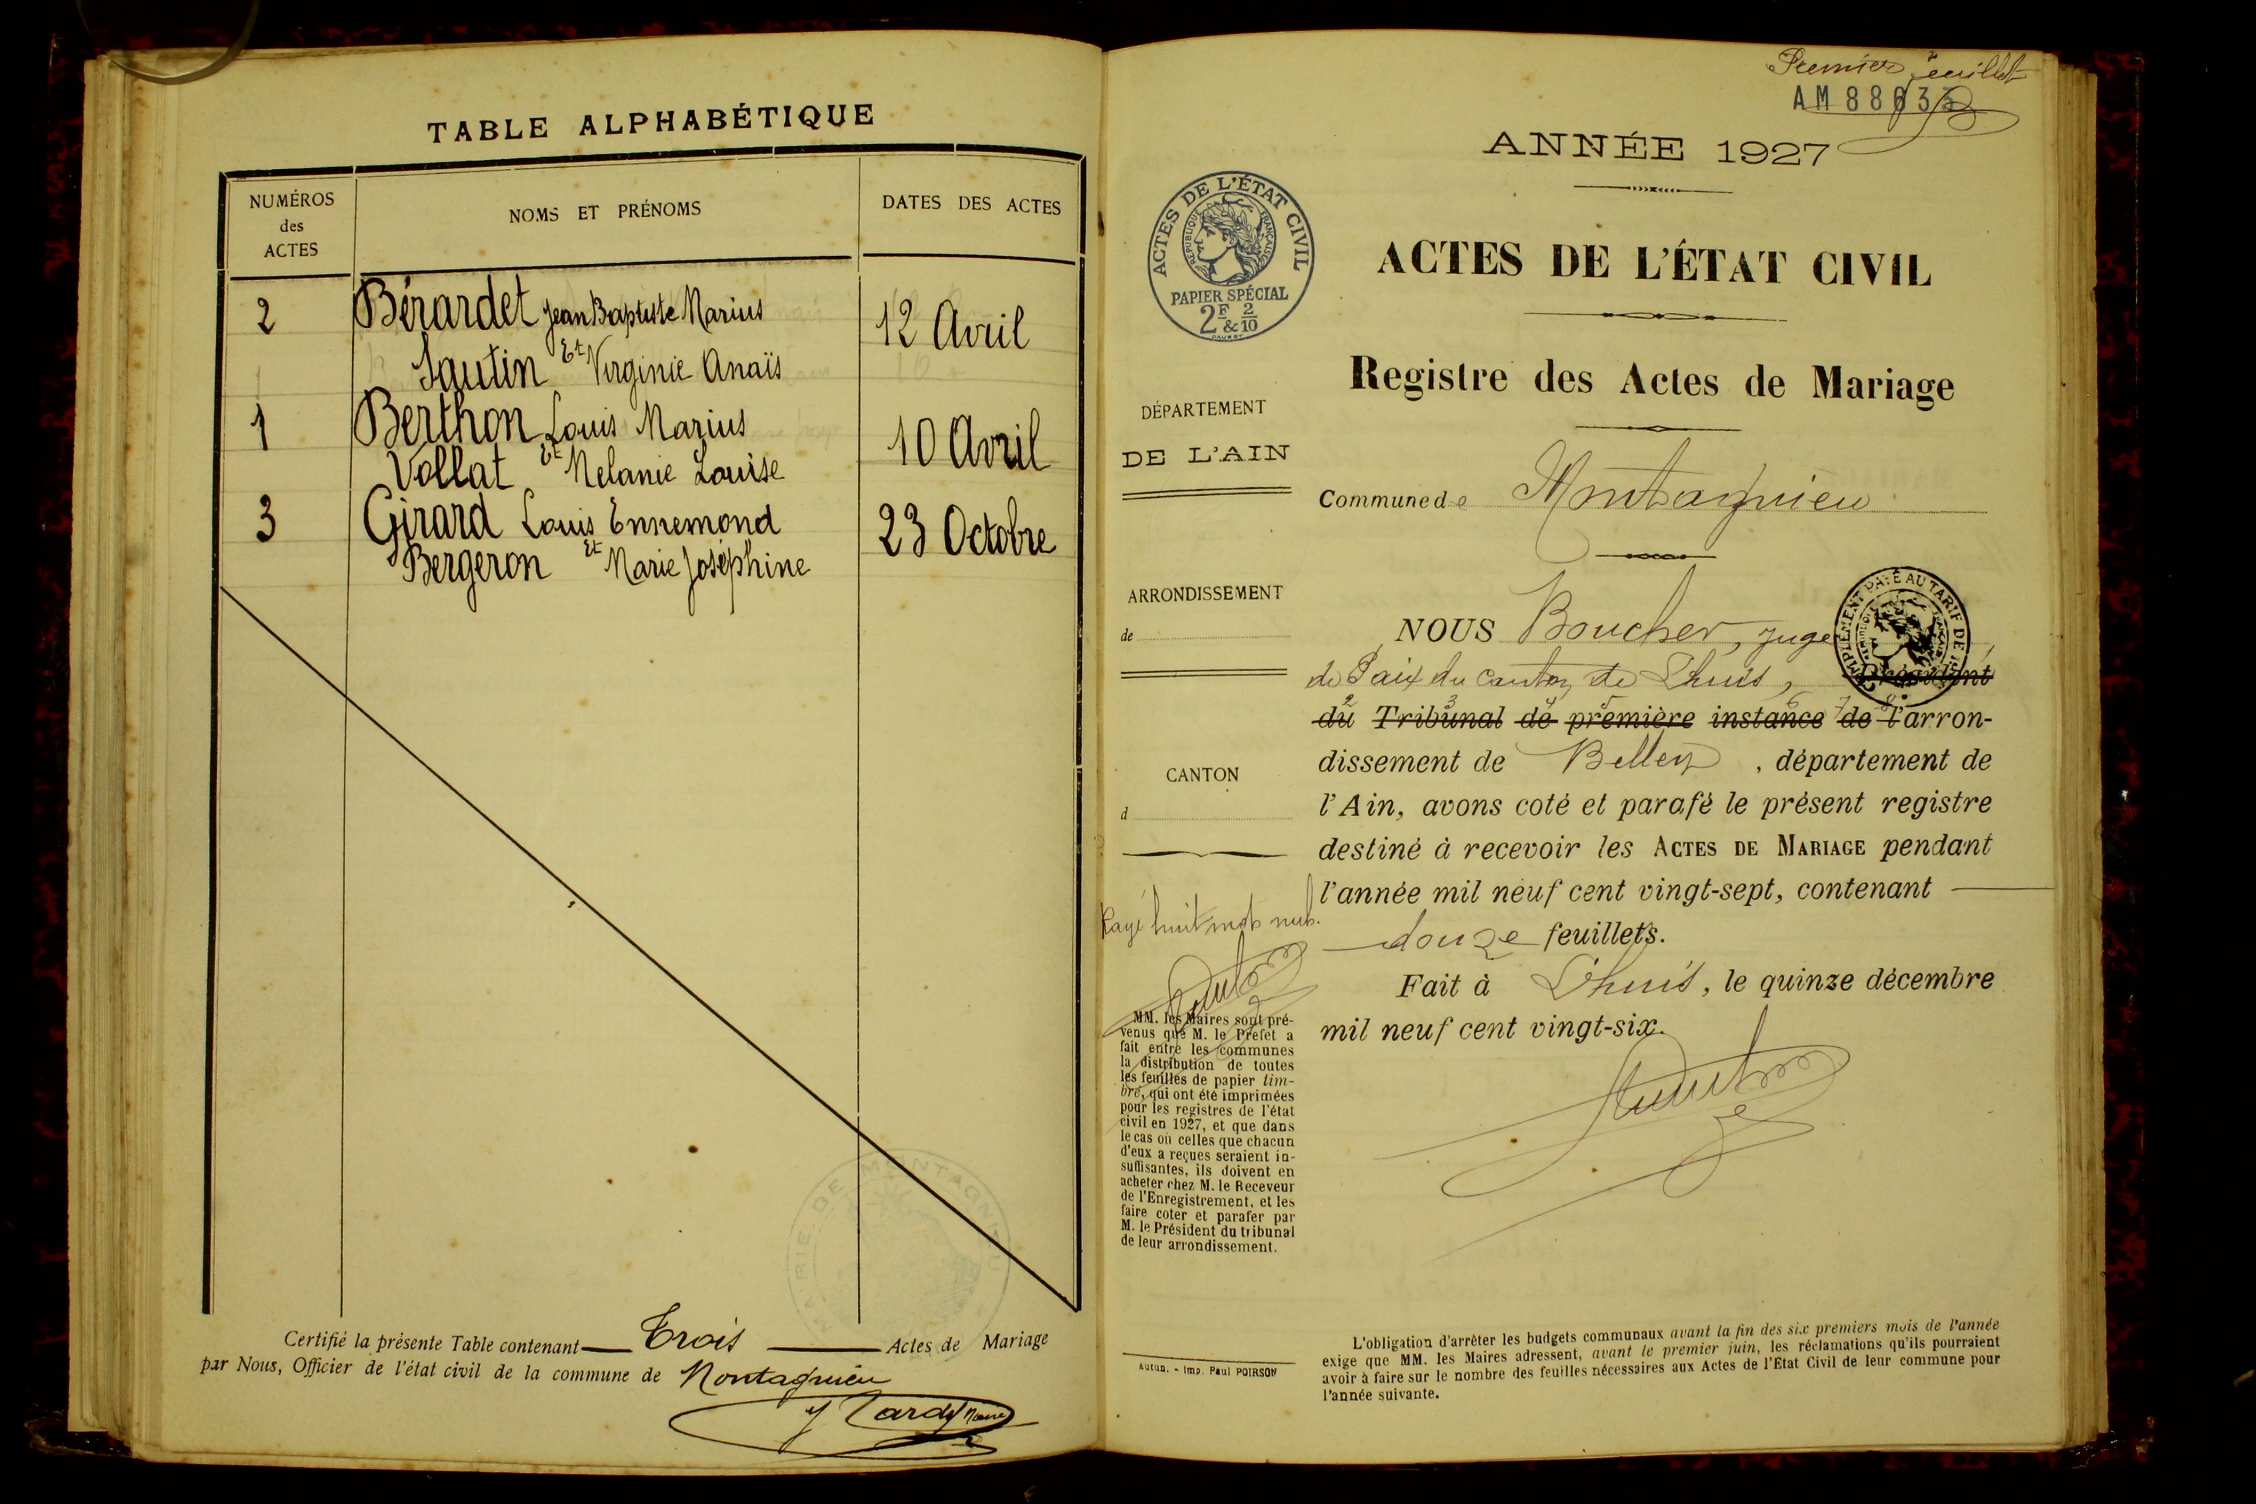 TABLE ALPHABÉTIQUE
NUMÉROS
des
ACTES
NOMS ET PRÉNOMS
DATES DES ACTES
2 Bérardet Jean Baptiste Marius 12 Avril
Et
Sautin Virginie Anaïs
1 Berthon Louis Marius 10 Avril
Et
Vollat Melanie Louise
3 Girard Louis Ennemond 23 Octobre
Et
Bergeron Marie Joséphine
MAIRIE DE MONTAGNIEU
Certifié la présente Table contenant Trois Actes de Mariage
par Nous, Officier de l'état civil de la commune de Montagnieu
Tardy Maire
Premier feuillet
ANNÉE 1927
ACTES DE L'ÉTAT CIVIL
REPUBLIQUE FRANÇAISE
PAPIER SPÉCIAL
2F & 2/10
ACTES DE L'ÉTAT CIVIL
Registre des Actes de Mariage
DÉPARTEMENT
DE L'AIN
Commune de Montagnieu
ARRONDISSEMENT
de
CANTON
d
NOUS Boucher, juge
de Paix du canton de Lhuis, Président
du Tribunal de première instance de l'arron-
dissement de Belley, département de
l'Ain, avons coté et parafé le présent registre
destiné à recevoir les ACTES DE MARIAGE pendant
l'année mil neuf cent vingt-sept, contenant
douze feuillets.
Fait à Lhuis, le quinze décembre
mil neuf cent vingt-six.
Rayé huit mots nuls.
MM. les Maires sont pré-
venus que M. le Préfet a
fait entre les communes
la distribution de toutes
les feuilles de papier tim-
bré, qui ont été imprimées
pour les registres de l'état
civil en 1927, et que dans
le cas où celles que chacun
d'eux a reçues seraient in-
suffisantes, ils doivent en
acheter chez M. le Receveur
de l'Enregistrement, et les
faire coter et parafer par
M. le Président du tribunal
de leur arrondissement.
Autun. - Imp. Paul POIRSON
L'obligation d'arrêter les budgets communaux avant la fin des six premiers mois de l'année
exige que MM. les Maires adressent, avant le premier juin, les réclamations qu'ils pourraient
avoir à faire sur le nombre des feuilles nécessaires aux Actes de l'État Civil de leur commune pour
l'année suivante.